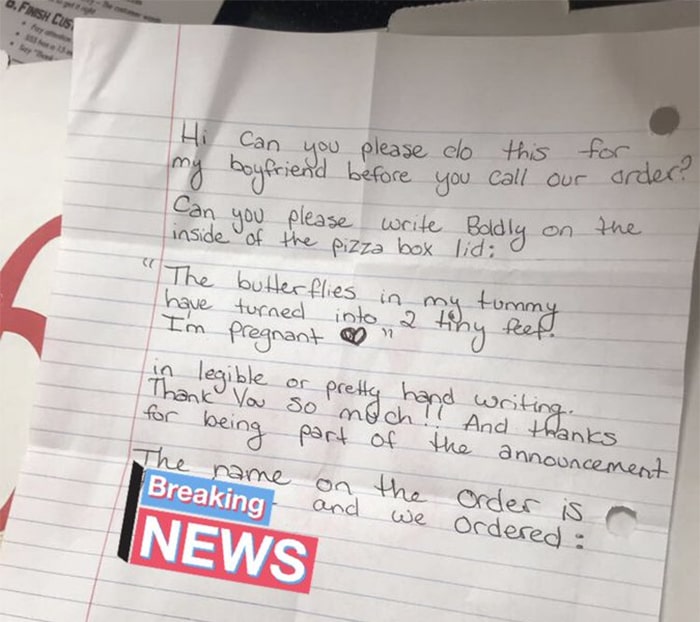 D. FINISH CUS
Hi Can you please do this for
my boyfriend before you call our order?
Can you please write Boldly on the
inside of the pizza box lid:
"The butterflies in my tummy
have turned into 2 tiny feet.
I'm pregnant ♡"
in legible or pretty hand writing.
Thank You so much!! And thanks
for being part of the announcement
The name on the order is
Breaking
and we ordered:
NEWS